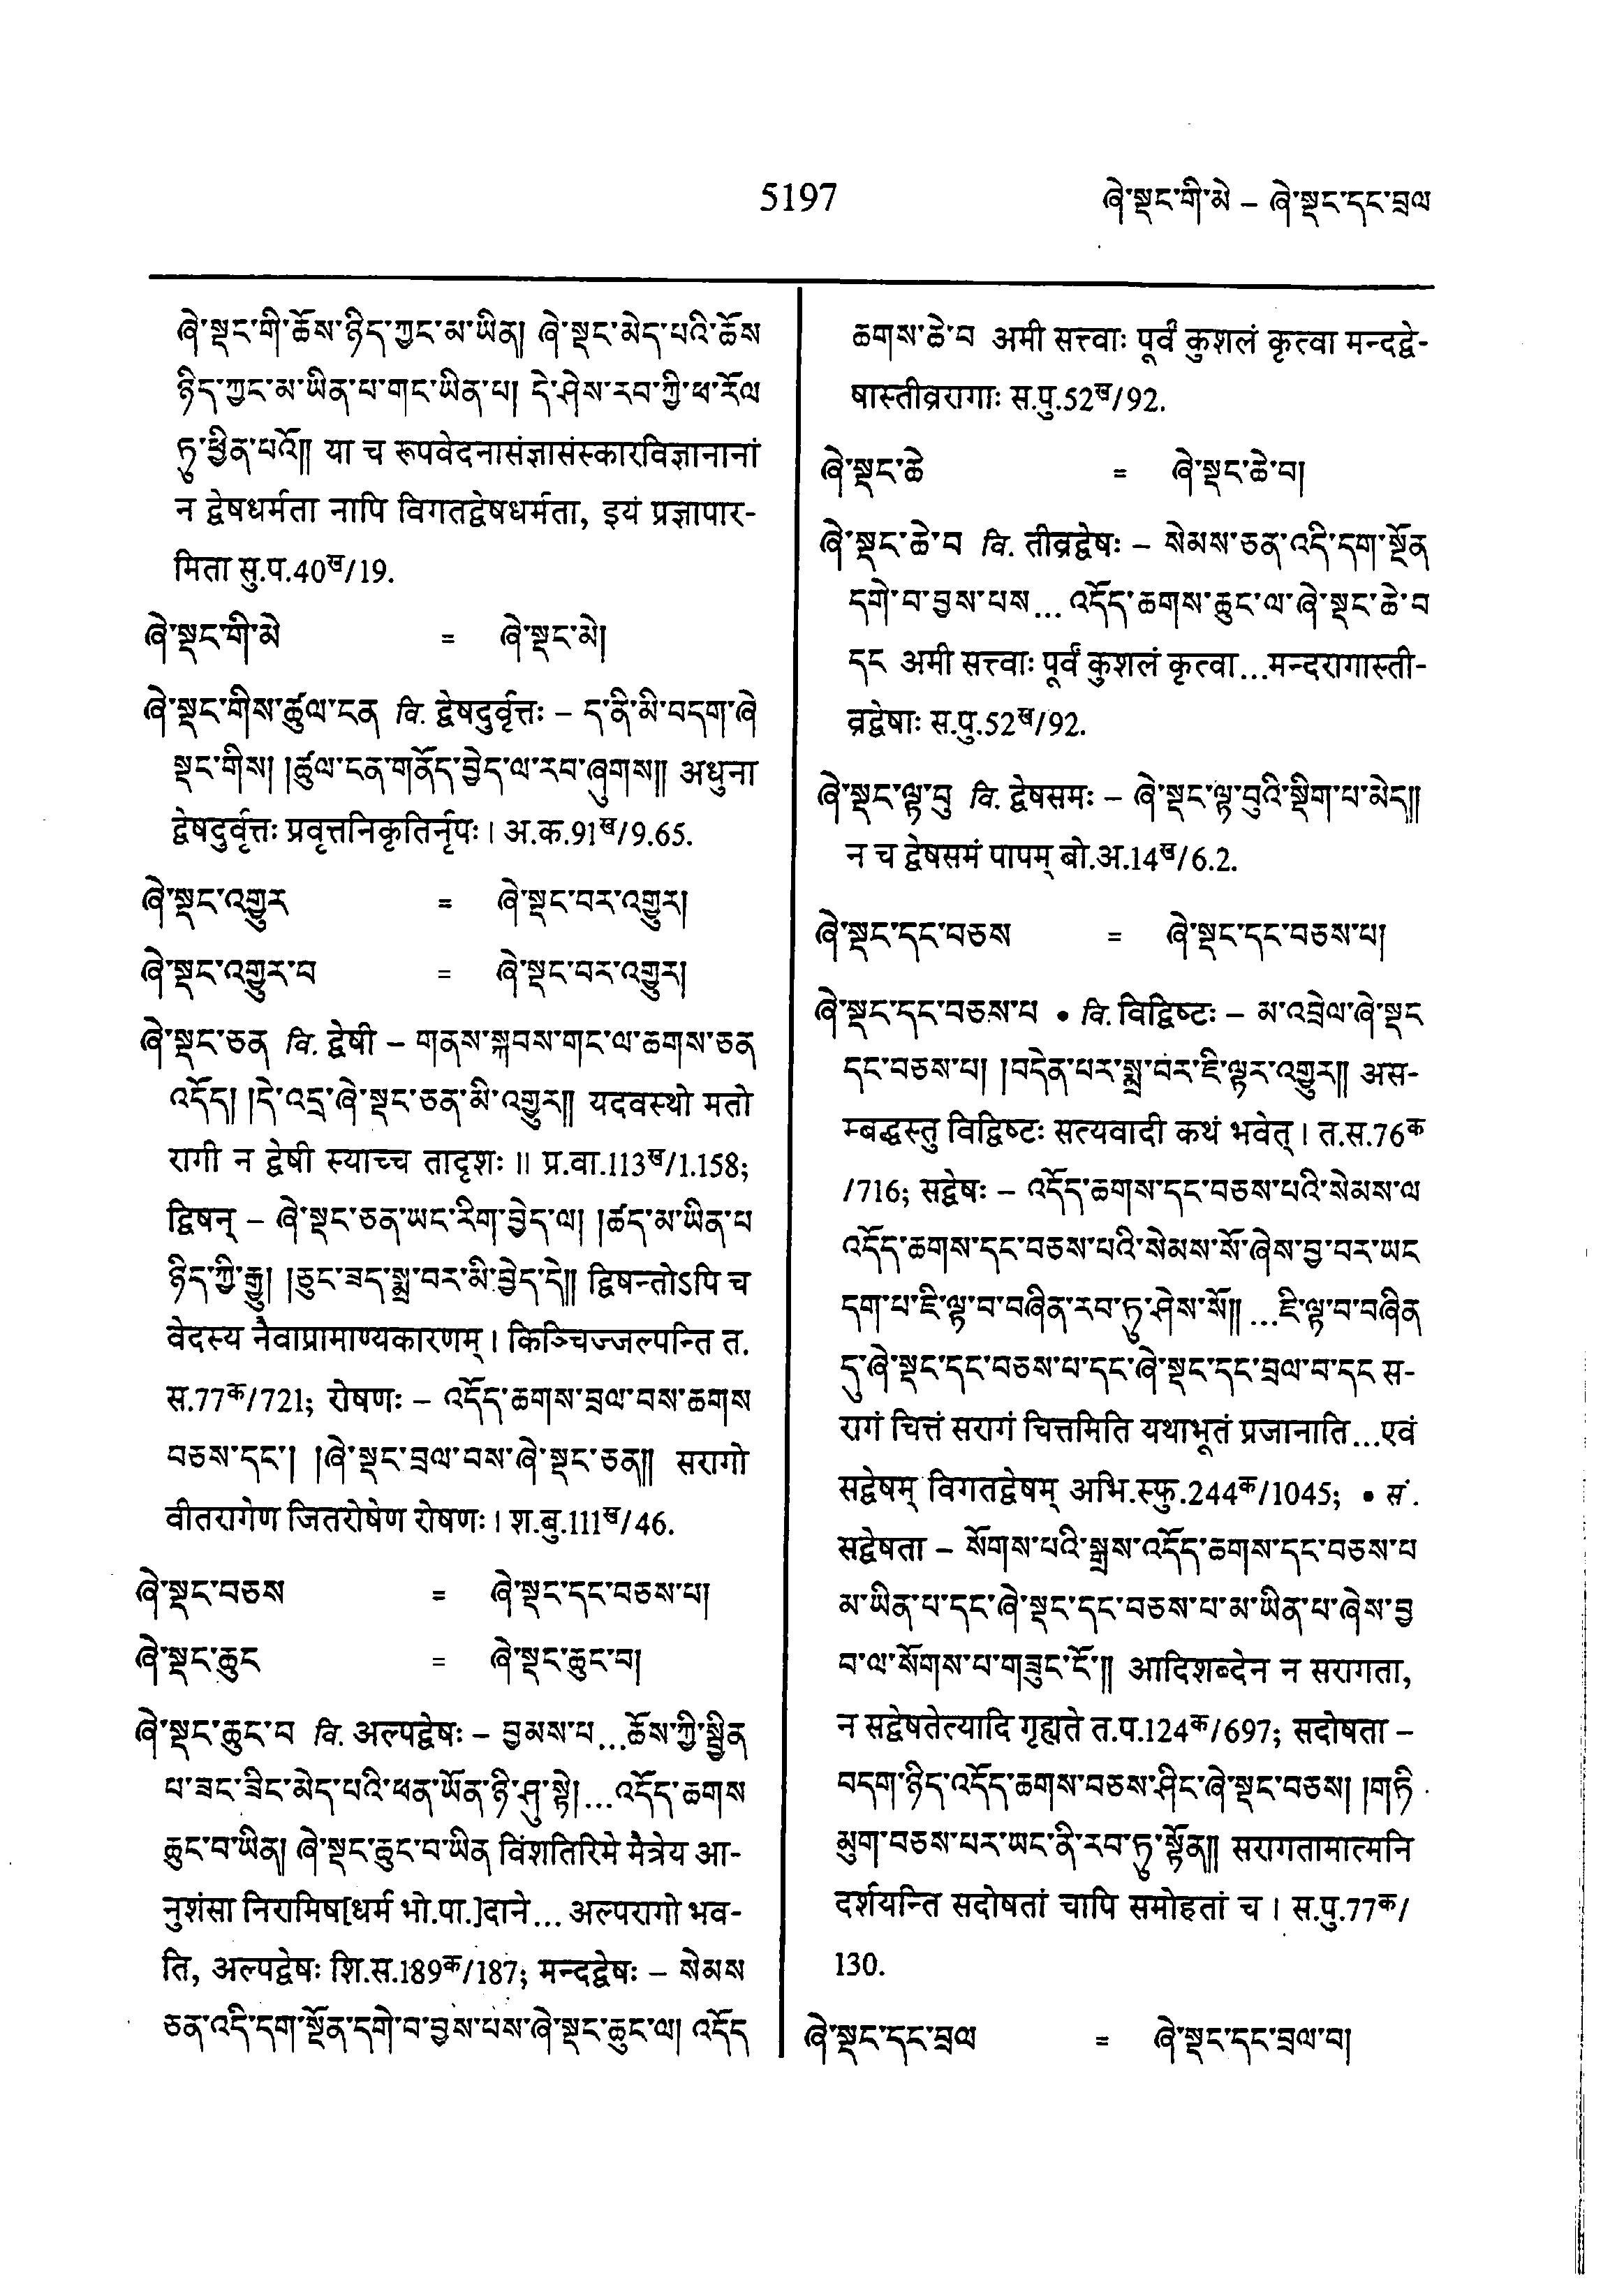 5197
ཞེ་སྡང་གི་མེ – ཞེ་སྡང་དང་བྲལ
ཞེ་སྡང་གི་ཆོས་ཉིད་ཀྱང་མ་ཡིན། ཞེ་སྡང་མེད་པའི་ཆོས
ཉིད་ཀྱང་མ་ཡིན་པ་གང་ཡིན་པ། དེ་ཤེས་རབ་ཀྱི་ཕ་རོལ
ཏུ་ཕྱིན་པའོ༎ या च रूपवेदनासंज्ञासंस्कारविज्ञानानां
न द्वेषधर्मता नापि विगतद्वेषधर्मता, इयं प्रज्ञापार-
मिता सु.प.40ख/19.
ཞེ་སྡང་གི་མེ = ཞེ་སྡང་མེ།
ཞེ་སྡང་གིས་ཚུལ་ངན वि. द्वेषदुर्वृत्तः – ད་ནི་མི་བདག་ཞེ
སྡང་གིས། །ཚུལ་ངན་གནོད་བྱེད་ལ་རབ་ཞུགས༎ अधुना
द्वेषदुर्वृत्तः प्रवृत्तनिकृतिर्नृपः। अ.क.91ख/9.65.
ཞེ་སྡང་འགྱུར = ཞེ་སྡང་བར་འགྱུར།
ཞེ་སྡང་འགྱུར་བ = ཞེ་སྡང་བར་འགྱུར།
ཞེ་སྡང་ཅན वि. द्वेषी – གནས་སྐབས་གང་ལ་ཆགས་ཅན
འདོད། །དེ་འདྲ་ཞེ་སྡང་ཅན་མི་འགྱུར༎ यदवस्थो मतो
रागी न द्वेषी स्याच्च तादृशः॥ प्र.वा.113ख/1.158;
द्विषन् – ཞེ་སྡང་ཅན་ཡང་རིག་བྱེད་ལ། །ཚད་མ་ཡིན་པ
ཉིད་ཀྱི་རྒྱུ། །ཅུང་ཟད་སྨྲ་བར་མི་བྱེད་དེ༎ द्विषन्तोऽपि च
वेदस्य नैवाप्रामाण्यकारणम्। किञ्चिज्जल्पन्ति त.
स.77क/721; रोषणः – འདོད་ཆགས་བྲལ་བས་ཆགས
བཅས་དང་། །ཞེ་སྡང་བྲལ་བས་ཞེ་སྡང་ཅན༎ सरागो
वीतरागेण जितरोषेण रोषणः। श.बु.111ख/46.
ཞེ་སྡང་བཅས = ཞེ་སྡང་དང་བཅས་པ།
ཞེ་སྡང་ཆུང = ཞེ་སྡང་ཆུང་བ།
ཞེ་སྡང་ཆུང་བ वि. अल्पद्वेषः – བྱམས་པ...ཆོས་ཀྱི་སྦྱིན
པ་ཟང་ཟིང་མེད་པའི་ཕན་ཡོན་ཉི་ཤུ་སྟེ།...འདོད་ཆགས
ཆུང་བ་ཡིན། ཞེ་སྡང་ཆུང་བ་ཡིན विंशतिरिमे मैत्रेय आ-
नुशंसा निरामिष[धर्म भो.पा.]दाने... अल्परागो भव-
ति, अल्पद्वेषः शि.स.189क/187; मन्दद्वेषः – སེམས
ཅན་འདི་དག་སྔོན་དགེ་བ་བྱས་པས་ཞེ་སྡང་ཆུང་ལ། འདོད
ཆགས་ཆེ་བ अमी सत्त्वाः पूर्वं कुशलं कृत्वा मन्दद्वे-
षास्तीव्ररागाः स.पु.52ख/92.
ཞེ་སྡང་ཆེ = ཞེ་སྡང་ཆེ་བ།
ཞེ་སྡང་ཆེ་བ वि. तीव्रद्वेषः – སེམས་ཅན་འདི་དག་སྔོན
དགེ་བ་བྱས་པས... འདོད་ཆགས་ཆུང་ལ་ཞེ་སྡང་ཆེ་བ
དང अमी सत्त्वाः पूर्वं कुशलं कृत्वा...मन्दरागास्ती-
व्रद्वेषाः स.पु.52ख/92.
ཞེ་སྡང་ལྟ་བུ वि. द्वेषसमः – ཞེ་སྡང་ལྟ་བུའི་སྡིག་པ་མེད༎
न च द्वेषसमं पापम् बो.अ.14ख/6.2.
ཞེ་སྡང་དང་བཅས = ཞེ་སྡང་དང་བཅས་པ།
ཞེ་སྡང་དང་བཅས་པ • वि. विद्विष्टः – མ་འབྲེལ་ཞེ་སྡང
དང་བཅས་པ། །བདེན་པར་སྨྲ་བར་ཇི་ལྟར་འགྱུར༎ अस-
म्बद्धस्तु विद्विष्टः सत्यवादी कथं भवेत्। त.स.76क
/716; सद्वेषः – འདོད་ཆགས་དང་བཅས་པའི་སེམས་ལ
འདོད་ཆགས་དང་བཅས་པའི་སེམས་སོ་ཞེས་བྱ་བར་ཡང
དག་པ་ཇི་ལྟ་བ་བཞིན་རབ་ཏུ་ཤེས་སོ༎ ...ཇི་ལྟ་བ་བཞིན
དུ་ཞེ་སྡང་དང་བཅས་པ་དང་ཞེ་སྡང་དང་བྲལ་བ་དང स-
रागं चित्तं सरागं चित्तमिति यथाभूतं प्रजानाति...एवं
सद्वेषम् विगतद्वेषम् अभि.स्फु.244क/1045; • सं.
सद्वेषता – སོགས་པའི་སྒྲས་འདོད་ཆགས་དང་བཅས་པ
མ་ཡིན་པ་དང་ཞེ་སྡང་དང་བཅས་པ་མ་ཡིན་པ་ཞེས་བྱ
བ་ལ་སོགས་པ་གཟུང་ངོ་༎ आदिशब्देन न सरागता,
न सद्वेषतेत्यादि गृह्यते त.प.124क/697; सदोषता –
བདག་ཉིད་འདོད་ཆགས་བཅས་ཤིང་ཞེ་སྡང་བཅས། །གཏི
མུག་བཅས་པར་ཡང་ནི་རབ་ཏུ་སྟོན༎ सरागतामात्मनि
दर्शयन्ति सदोषतां चापि समोहतां च। स.पु.77क/
130.
ཞེ་སྡང་དང་བྲལ = ཞེ་སྡང་དང་བྲལ་བ།